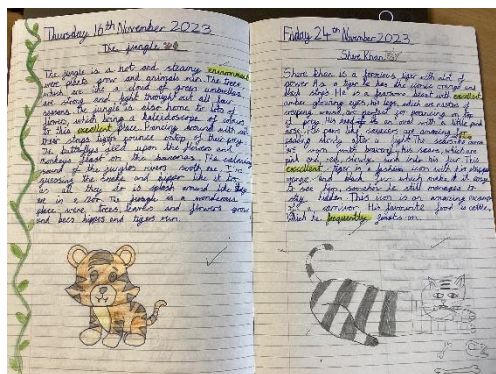 Thursday 16th November 2023
The jungle
The jungle is a hot and steamy environment
were plants grow and animals run. The trees,
which are like a cloud of green umbrellas,
are strong and light throught out all four
seasons. The jungle is also home to lots
flowers, which bring a kaleidoscope of colours
to this excellent place. Prancing around with
their stings tigers prounce ontop of their prey.
The butterflys glied upon the flowers and
monkeys feast on the bananas. The calming
sound of the jungles rivers sooth me. I'm
guessing the snakes and hippos like it to,
as all they do is splash around like they
are in a zoo. The jungle is a wonderous
place were trees, leaves and flowers grow
and bees hippos and tigers run.
Friday 24th November 2023
Shere Khan
Shere Khan is a ferocious tiger with alot of
power. As a tiger he has the iconic orange and
black strips. He is a fearsome beast with excellent
amber glowing eyes, his legs, which are masters of
creeping around, are perfect for pouncing on top
of prey. His
nose. His paws like saucers are amazing for
silently after
of
pink and red, slowly sink into his fur. This
excellent tiger is a fashion icon with his striped
orange and black fur, which make it easy
to see him, somehow he still manages to
stay hidden. This icon is an amazing
of a survivor. His favourite food is cattle,
which he frequently feasts on.